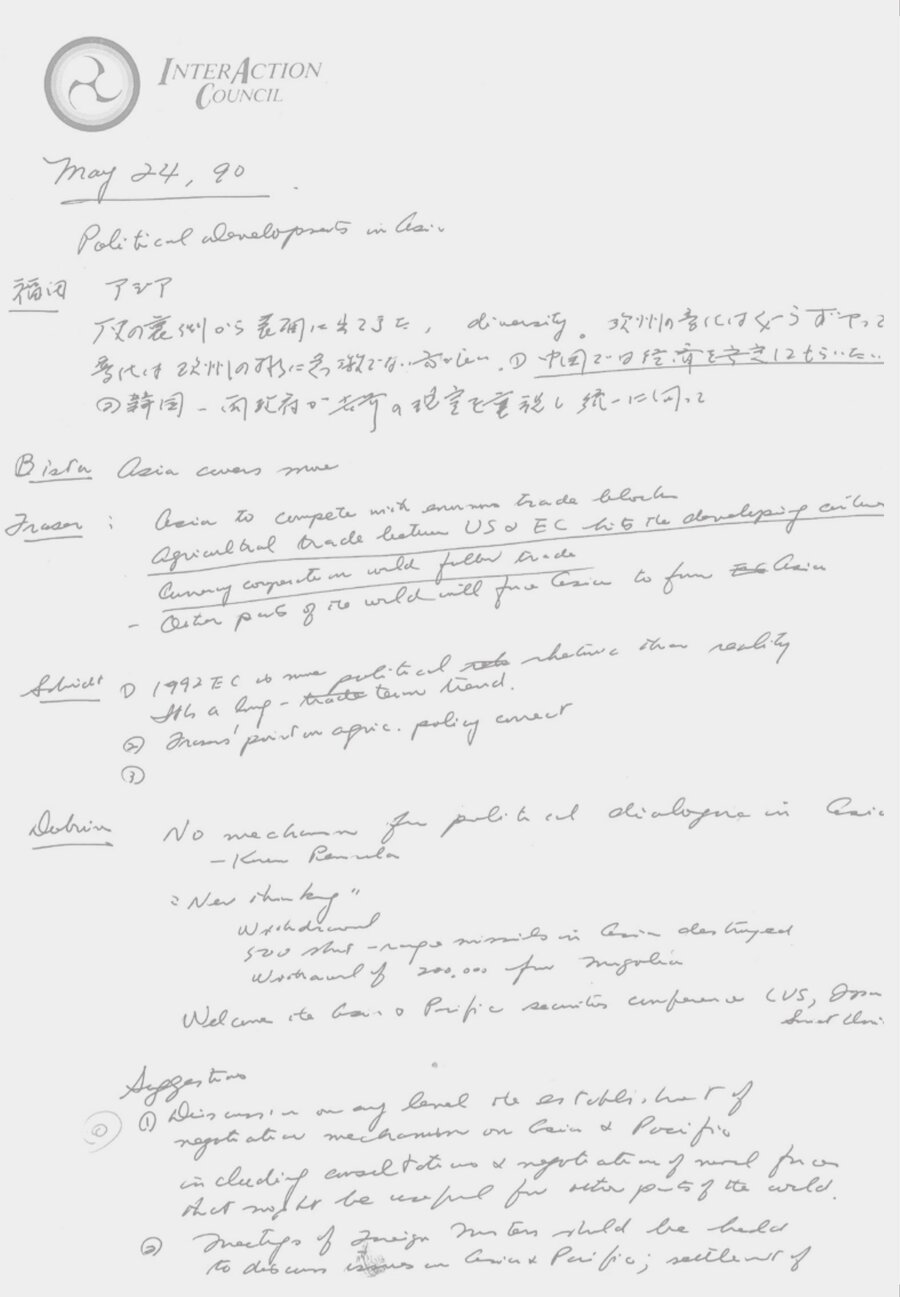 INTERACTION
COUNCIL
May 24, 90
Political developments in Asia
福田 アジア
から表面に出てきた, diversity。 欧州の変化は
変化は欧州の形に急激でない方が ① 中国では経済を安定してもらいたい
② 韓国 - 両政府が 現実を重視し統一に向って
Bista Asia covers more
Fraser : Asia to compete with enormous trade blocks
Agricultural trade between US & EC hits the developing
Currency cooperation would follow trade
- Other parts of the world will force Asia to form EC Asia
Schmidt ① 1992 EC is more political rhetoric than reality
It is a long - trade term trend.
② Frasers' point on agric. policy correct
③
Dobrin No mechanism for political dialogue in Asia
- Korean Peninsula
"New thinking"
Withdrawal
520 short-range missiles in Asia destroyed
Withdrawal of 200,000 from Mongolia
Welcome the Asia & Pacific securities conference (US,
Soviet
Suggestions
① Discussion on any level the establishment of
negotiation mechanism on Asia & Pacific
including consultations & negotiation of naval forces
that might be useful for other parts of the world.
② Meetings of Foreign Ministers should be held
to discuss issues on Asia & Pacific; settlement of